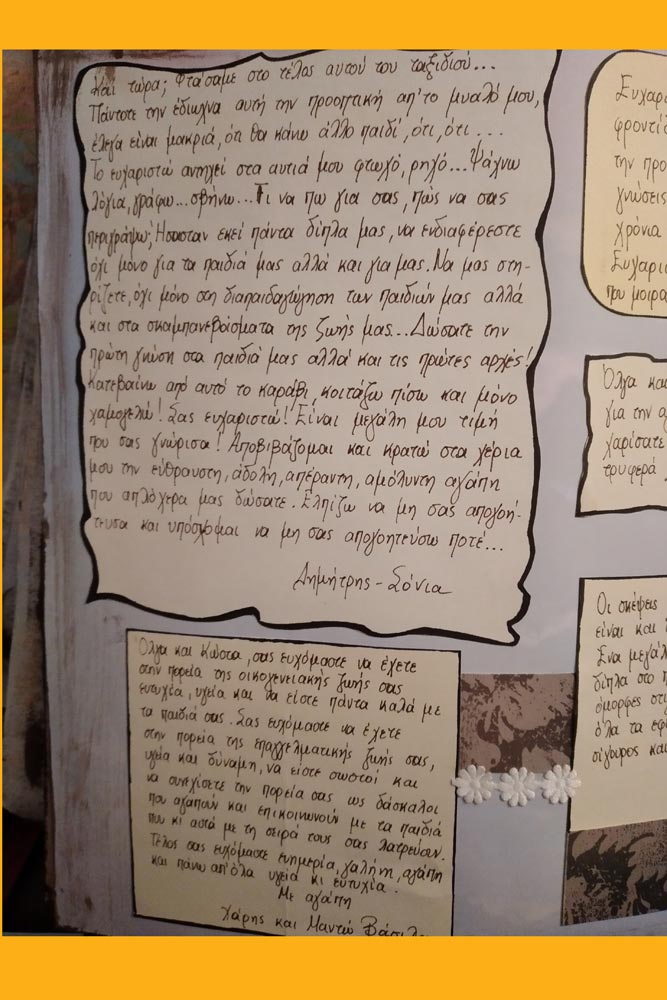 Και τώρα; Φτάσαμε στο τέλος αυτού του ταξιδιού...
Πάντοτε την έδιωχνα αυτή την προοπτική απ' το μυαλό μου,
έλεγα είναι μακριά, ότι θα κάνω άλλο παιδί, ότι, ότι...
Το ευχαριστώ αντηχεί στα αυτιά μου φτωχό, ρηχό... Ψάχνω
λόγια, γράφω... σβήνω... Τι να πω για σας, πώς να σας
περιγράψω; Ήσασταν εκεί πάντα δίπλα μας, να ενδιαφέρεστε
όχι μόνο για τα παιδιά μας αλλά και για μας. Να μας στη-
ρίζετε, όχι μόνο στη διαπαιδαγώγηση των παιδιών μας αλλά
και στα σκαμπανεβάσματα της ζωής μας... Δώσατε την
πρώτη γνώση στα παιδιά μας αλλά και τις πρώτες αρχές!
Κατεβαίνω από αυτό το καράβι, κοιτάζω πίσω και μόνο
χαμογελώ! Σας ευχαριστώ! Είναι μεγάλη μου τιμή
που σας γνώρισα! Αποβιβάζομαι και κρατώ στα χέρια
μου την εύθραυστη, άδολη, απέραντη, αμόλυντη αγάπη
που απλόχερα μας δώσατε. Ελπίζω να μη σας απογοή-
τευσα και υπόσχομαι να μη σας απογοητεύσω ποτέ...
Δημήτρης - Σόνια
Όλγα και Κώστα, σας ευχόμαστε να έχετε
στην πορεία της οικογενειακής ζωής σας
ευτυχία, υγεία και να είστε πάντα καλά με
τα παιδιά σας. Σας ευχόμαστε να έχετε
στην πορεία της επαγγελματικής ζωής σας,
υγεία και δύναμη, να είστε σωστοί και
να συνεχίσετε την πορεία σας ως δάσκαλοι
που αγαπούν και επικοινωνούν με τα παιδιά
που κι αυτά με τη σειρά τους σας λατρεύουν.
Τέλος σας ευχόμαστε ευημερία, γαλήνη, αγάπη
και πάνω απ' όλα υγεία κι ευτυχία.
Με αγάπη
Χάρης και Μαντώ
Ευχαρι
φροντί
την προ
γνώσεις
χρόνια
Ευχαρι
που μοιρα
Όλγα και
για την α
χαρίσατε
τρυφερά
Οι σκέψεις
είναι και
Ένα μεγάλ
δίπλα στο π
όμορφες στι
όλα τα εφ
σίγουρος και